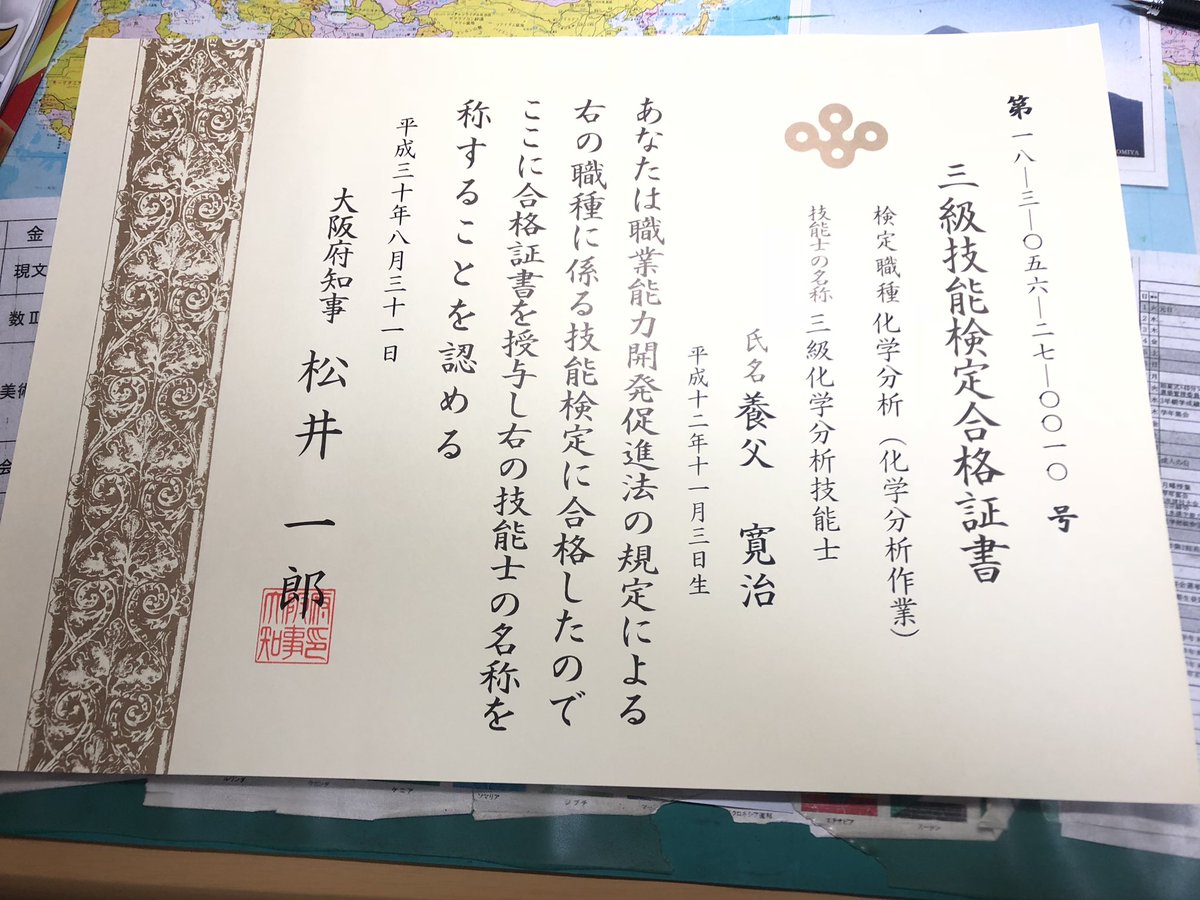 第一八―三―〇五六―二七―〇〇一〇号
三級技能検定合格証書
検定職種 化学分析（化学分析作業）
技能士の名称 三級化学分析技能士
氏名 養父 寛治
平成十二年十一月三日生
あなたは職業能力開発促進法の規定による
右の職種に係る技能検定に合格したので
ここに合格証書を授与し右の技能士の名称を
称することを認める
平成三十年八月三十一日
大阪府知事 松井 一郎
金
現文
数Ⅱ
美術
会
OMIYA
学年集会
ケニア
ソマリア
ジブチ
エチオピア
スーダン